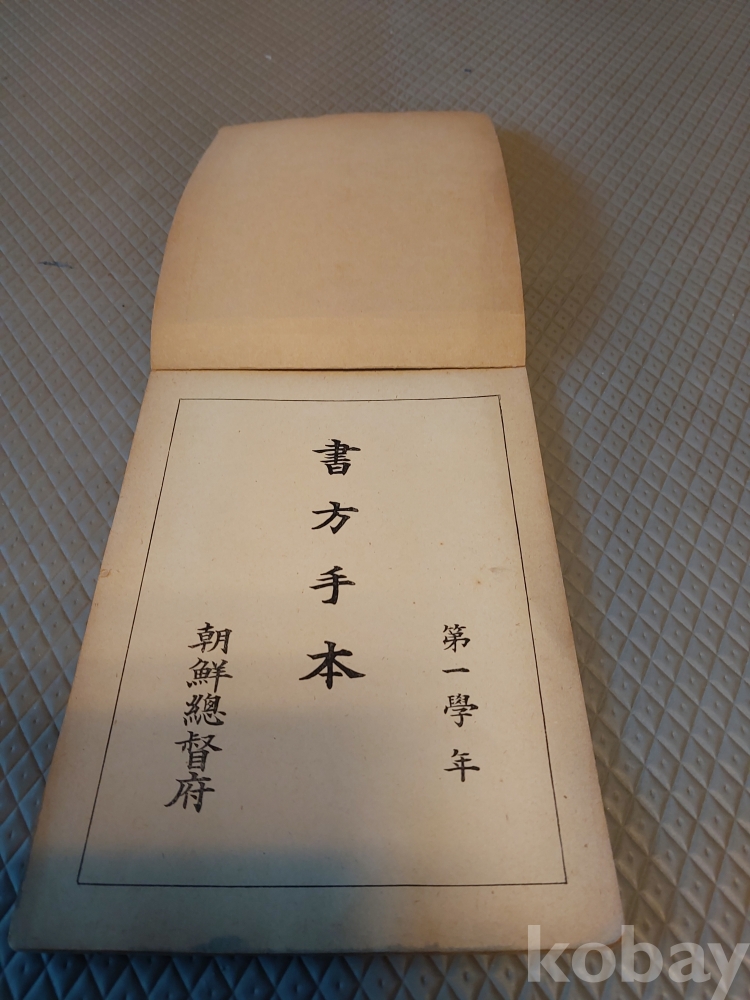 第一學年
書方手本
朝鮮總督府
kobay